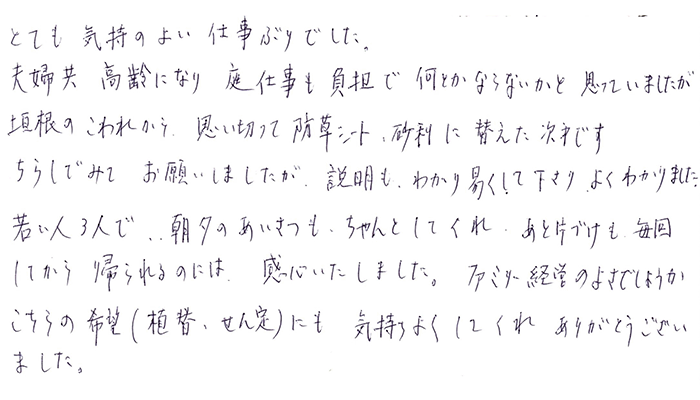 とても 気持のよい 仕事ぶりでした。
夫婦共 高齢になり 庭仕事も 負担で 何とかならないかと 思っていましたが
垣根のこわれから、思い切って 防草シート、砂利に 替えた次第です
ちらしでみて お願いしましたが、説明も、わかり易くして下さり、よくわかりました
若い人3人で、朝夕のあいさつも、ちゃんとしてくれ、あと片づけも 毎回
してから 帰られるのには、感心いたしました。ファミリー経営のよさでしょうか
こちらの希望(植替、せん定)にも 気持ちよくしてくれ ありがとうござい
ました。